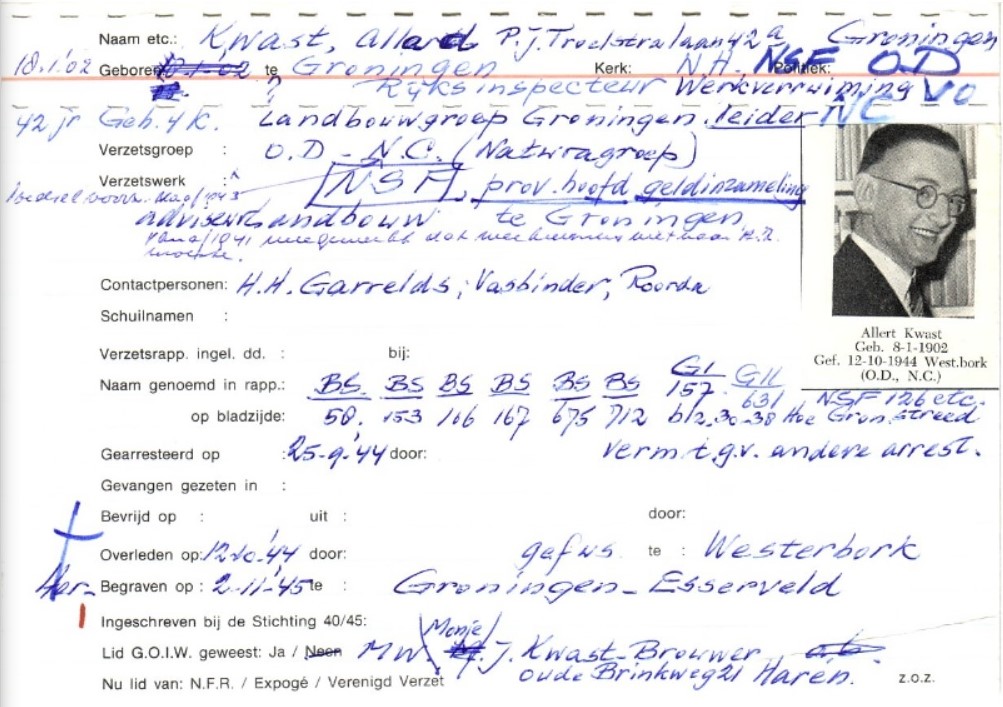 Naam etc.: Kwast, Allard P.J. Troelstralaan 42a Groningen
18.1.'02 Geboren te Groningen Kerk: N.H. NSF Politiek: O.D
? Rijksinspecteur Werkverruiming VO
42 jr Geh. 4 k. Landbouwgroep Groningen leider NC
Verzetsgroep : O.D - N.C. (Naturagroep)
Verzetswerk : NSF, prov. hoofd geldinzameling
adviseur landbouw te Groningen
1941 dat
Contactpersonen: H.H. Garrelds, Vasbinder, Roorda
Schuilnamen :
Allert Kwast
Geb. 8-1-1902
Gef. 12-10-1944 West.bork
(O.D., N.C.)
Verzetsrapp. ingel. dd. : bij:
Naam genoemd in rapp.: BS. BS BS BS BS BS GI 157 GIL 631 NSF 126 etc.
op bladzijde: 50, 153 166 167 675 712 b12.30-38 Hoe Gron. streed
Gearresteerd op : 25-9-'44 door: Verm. t.g.v. andere arrest.
Gevangen gezeten in :
Bevrijd op : uit : door:
Overleden op: 12-10-'44 door: gefus. te : Westerbork
Her- Begraven op : 2-11-'45 te : Groningen - Esserveld
Ingeschreven bij de Stichting 40/45:
Lid G.O.I.W. geweest: Ja / Neen Mw. J. Kwast-Brouwer
Nu lid van: N.F.R. / Expogé / Verenigd Verzet oude Brinkweg 21 Haren. z.o.z.